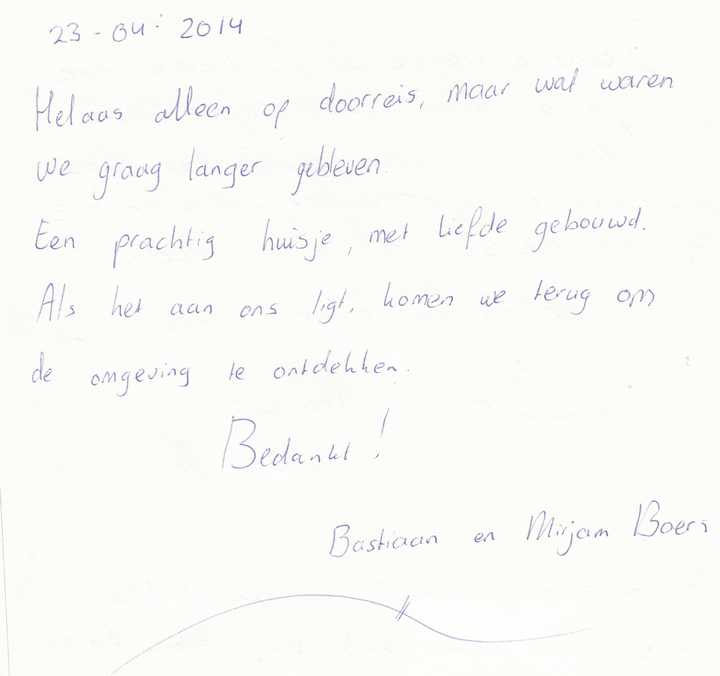 23-04-2014
Helaas alleen op doorreis, maar wat waren
we graag langer gebleven.
Een prachtig huisje, met liefde gebouwd.
Als het aan ons ligt, komen we terug om
de omgeving te ontdekken.
Bedankt!
Bastiaan en Mirjam Boers